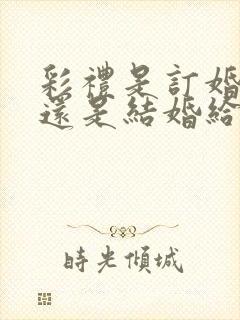 彩禮是訂婚
還是結婚給
時光傾城